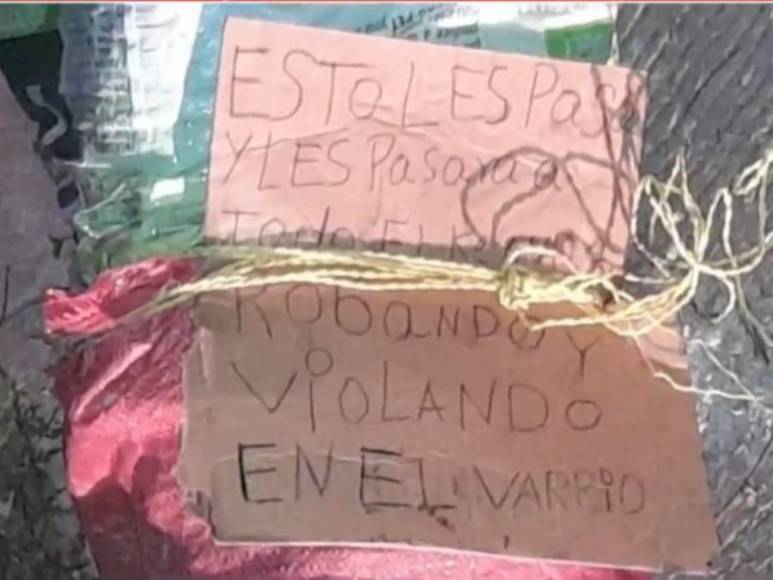 ESTO LES Pasa
Y LES Pasara a
Todo El
ROBANDO Y
VIOLANDO
EN EL VARRIO